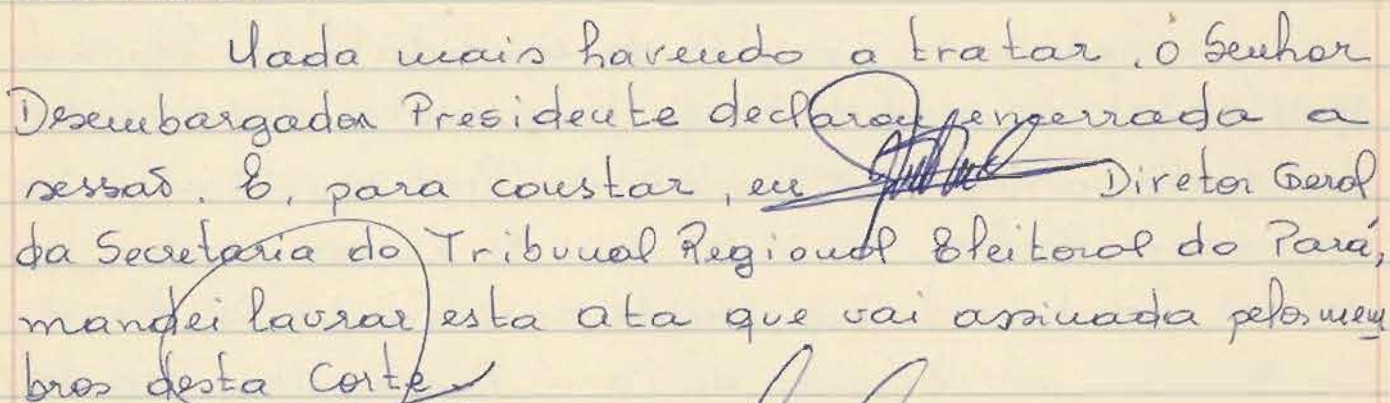 Nada mais havendo a tratar, o Senhor
Desembargador Presidente declarou encerrada a
sessão. E, para constar, eu Diretor Geral
da Secretaria do Tribunal Regional Eleitoral do Pará,
mandei lavrar esta ata que vai assinada pelos mem
bros desta Corte